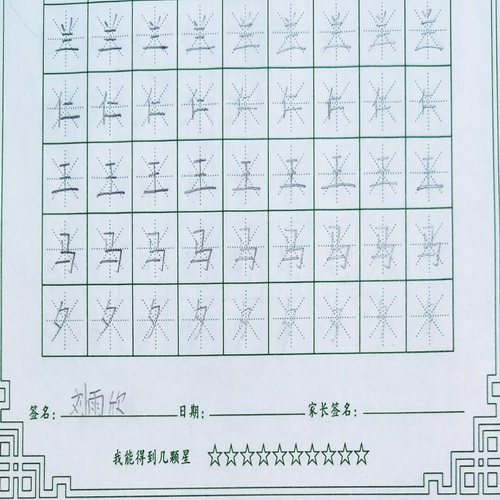 兰兰兰兰兰兰兰兰兰
仁仁仁仁仁仁仁仁仁
王王王王王王王王王
马马马马马马马马马
夕夕夕夕夕夕夕夕夕
签名: 刘雨欣 日期: 家长签名:
我能得到几颗星 ☆☆☆☆☆☆☆☆☆☆